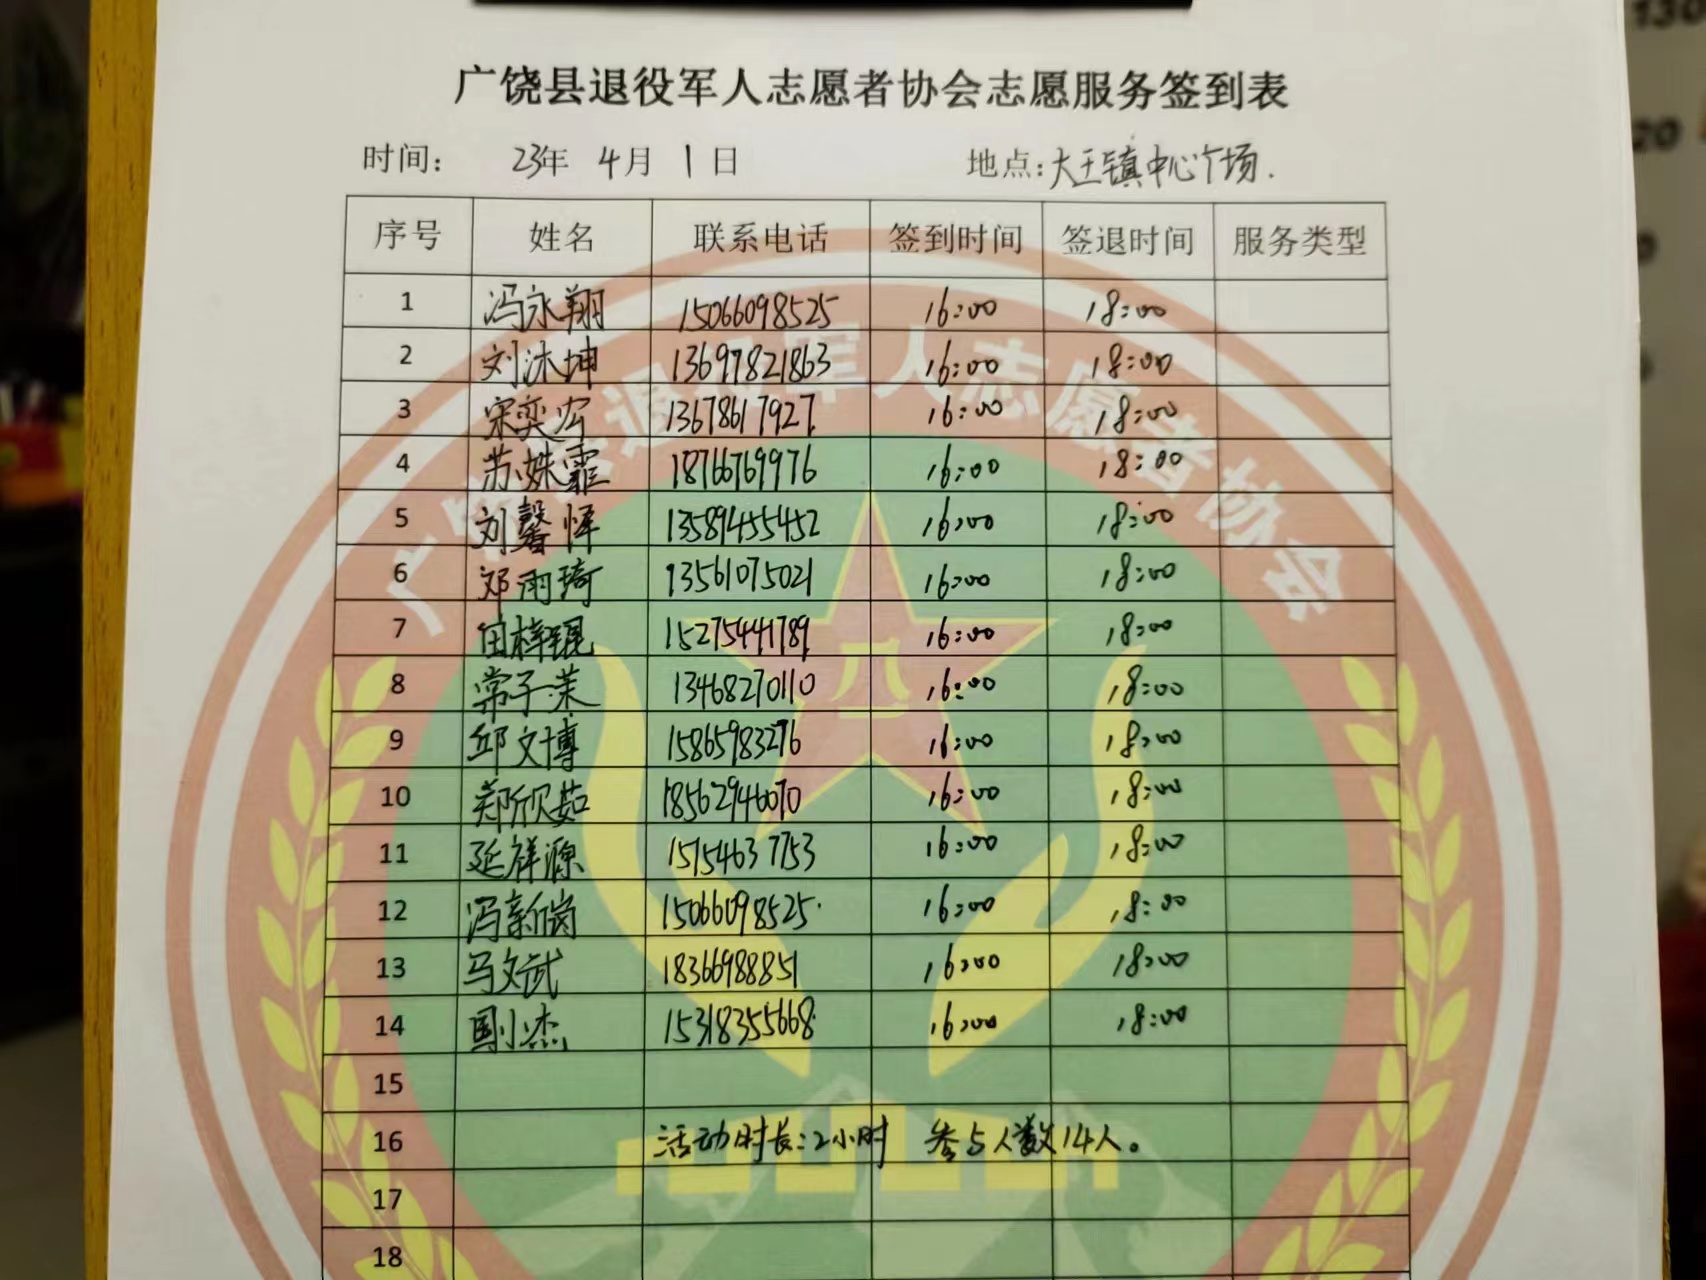 广饶县退役军人志愿者协会志愿服务签到表
时间： 23年 4月 1日 地点：大王镇中心广场.
序号 姓名 联系电话 签到时间 签退时间 服务类型
1 冯永翔 15066098525 16:00 18:00
2 刘沐坤 13697821863 16:00 18:00
3 宋奕宏 13678617927 16:00 18:00
4 苏姝霏 18766769976 16:00 18:00
5 刘馨怿 13589455452 16:00 18:00
6 邓雨琦 13561075021 16:00 18:00
7 田梓琨 15275441789 16:00 18:00
8 常子茉 13468270110 16:00 18:00
9 邱文博 15865983276 16:00 18:00
10 郑欣茹 18562946070 16:00 18:00
11 延祥源 15154637753 16:00 18:00
12 冯新岗 15066098525 16:00 18:00
13 马文武 18366988851 16:00 18:00
14 小杰 15318355668 16:00 18:00
15
16 活动时长：2小时 参与人数14人。
17
18
退役军人志愿者协会
八一
130
20